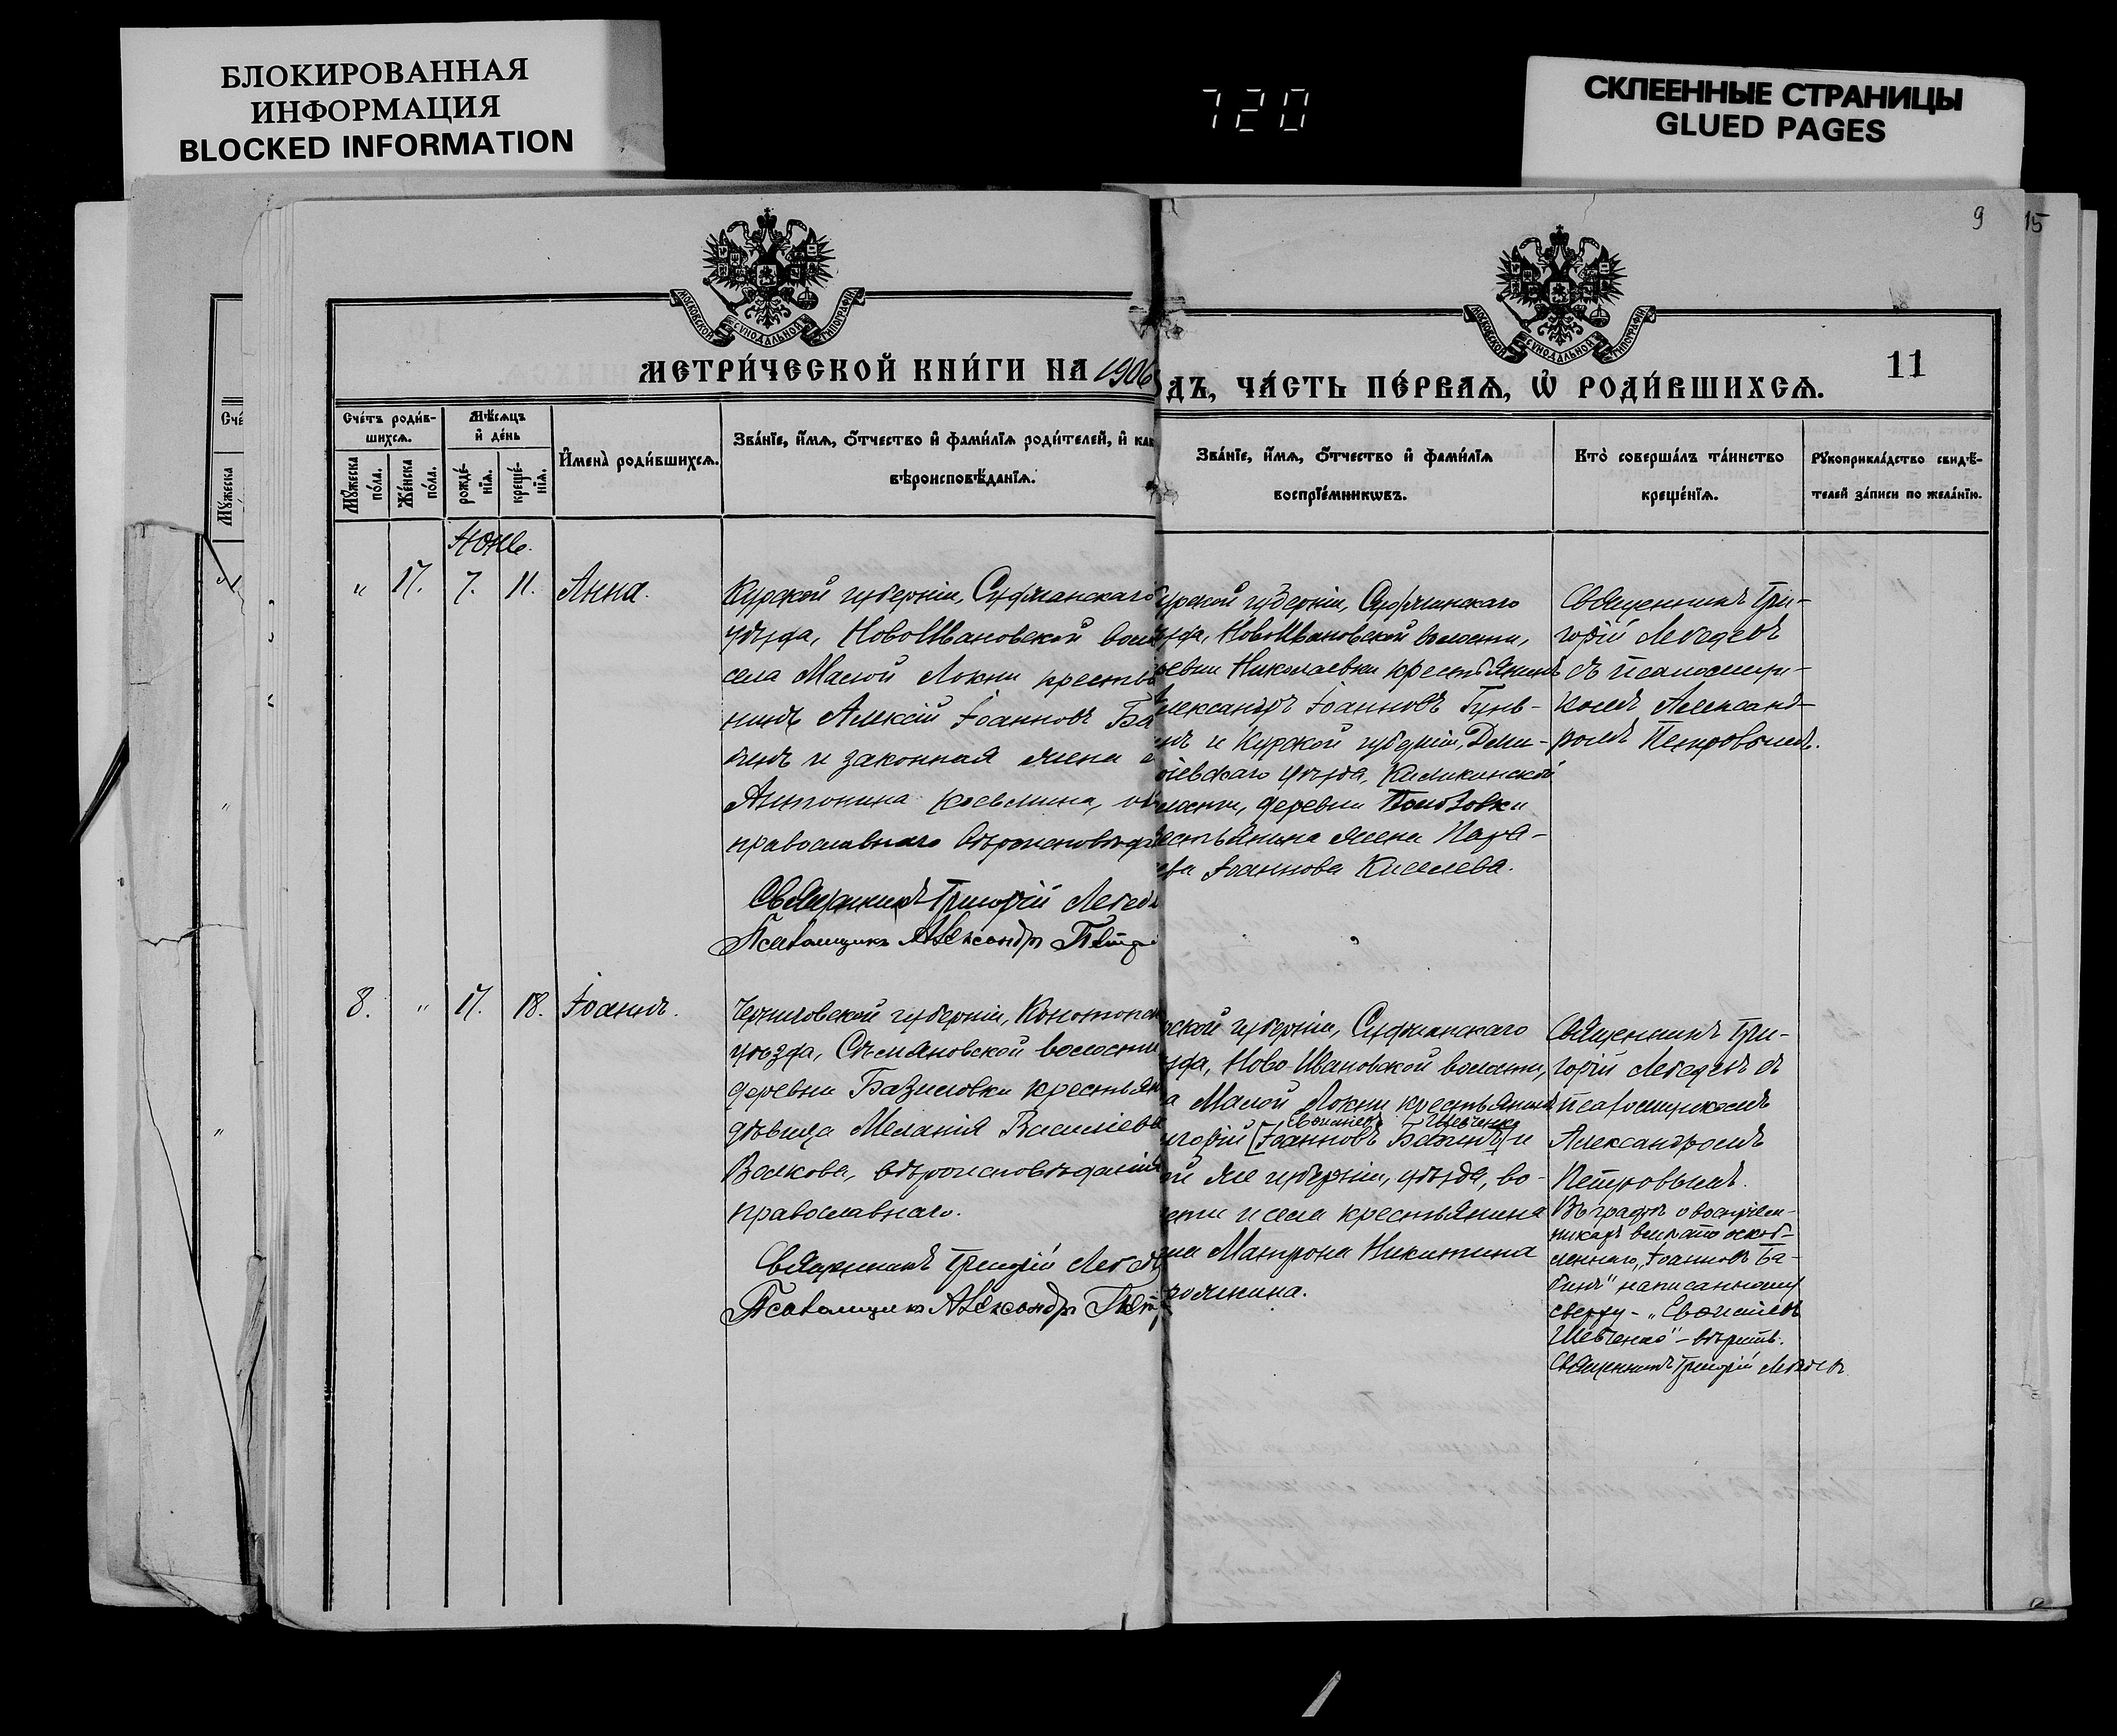 БЛОКИРОВАННАЯ
ИНФОРМАЦИЯ
BLOCKED INFORMATION
720
СКЛЕЕННЫЕ СТРАНИЦЫ
GLUED PAGES
9 15
МОСКОВСКОЙ СѴНОДАЛЬНОЙ ТИПОГРАФІИ
МОСКОВСКОЙ СѴНОДАЛЬНОЙ ТИПОГРАФІИ
МЕТРИ́ЧЕСКОЙ КНИ́ГИ НА 1906
ДЪ, ЧА́СТЬ ПЕ́РВАѦ, Ѡ҆ РОДИ́ВШИХСѦ.
11
Сче́тъ роди́в-
шихсѧ.
Мꙋ́жеска по́ла.
Же́нска по́ла.
Мѣ́сѧцъ
и҆ де́нь
рожде́-
нїѧ.
креще́-
нїѧ.
И҆мена̀ роди́вшихсѧ.
Зва́нїе, и҆́мѧ, ѻ҆́тчество и҆ фами́лїѧ роди́телей, и҆ как
вѣроисповѣ́данїѧ.
Зва́нїе, и҆́мѧ, ѻ҆́тчество и҆ фами́лїѧ
воспрїе́мникѡвъ.
Кто̀ соверша́лъ та́инство
креще́нїѧ.
Рꙋкоприкла́дство свидѣ́-
телей за́писи по жела́нїю.
Іюнь.
" 17. 7. 11. Анна.
Курской губерніи, Суджанскаго
уѣзда, НовоИвановской вол
села Малой Локни кресть
нинъ Алексій Іоанновъ Ба
бинъ и законная жена е
Антонина Косьмина, об
православнаго вѣроисповѣд
Священникъ Григорій Лебед
Псаломщикъ Александръ Петр
урской губерніи, Суджанскаго
ѣзда, НовоИвановской волости,
евни Николаевки крестьянинъ
лександръ Іоанновъ Гунь-
нъ и Курской губерніи, Дми-
ріевскаго уѣзда,
лости, деревни
естьянина жена Пара-
ева Іоаннова Киселева.
Священникъ Гри-
горій Лебедевъ
съ псаломщи-
комъ Александ-
ромъ Петровымъ.
8. " 17. 18. Іоаннъ.
Черниговской губерніи, Конотопск
уѣзда, Стьмяновской волости
деревни Базиловки крестьян
дѣвица Меланія Василіева
Волкова, вѣроисповѣданія
православнаго.
Священникъ Григорій Лебед
Псаломщикъ Александръ Петр
ской губерніи, Суджанскаго
зда, Ново-Ивановской волости,
а Малой Локни крестьянинъ
Шевченко
игорій [Іоанновъ Бабинъ] и
ой же губерніи, уѣзда, во-
сти и села крестьянина
на Матрона Никитина
Священникъ Гри-
горій Лебедевъ съ
псаломщикомъ
Александромъ
Петровымъ.
Въ графѣ о воспріем-
никахъ вмѣсто оскоб-
леннаго „Іоанновъ Ба-
бинъ" написанному
сверху -
Шевченко" - вѣрить.
Священникъ Григорій Лебедевъ